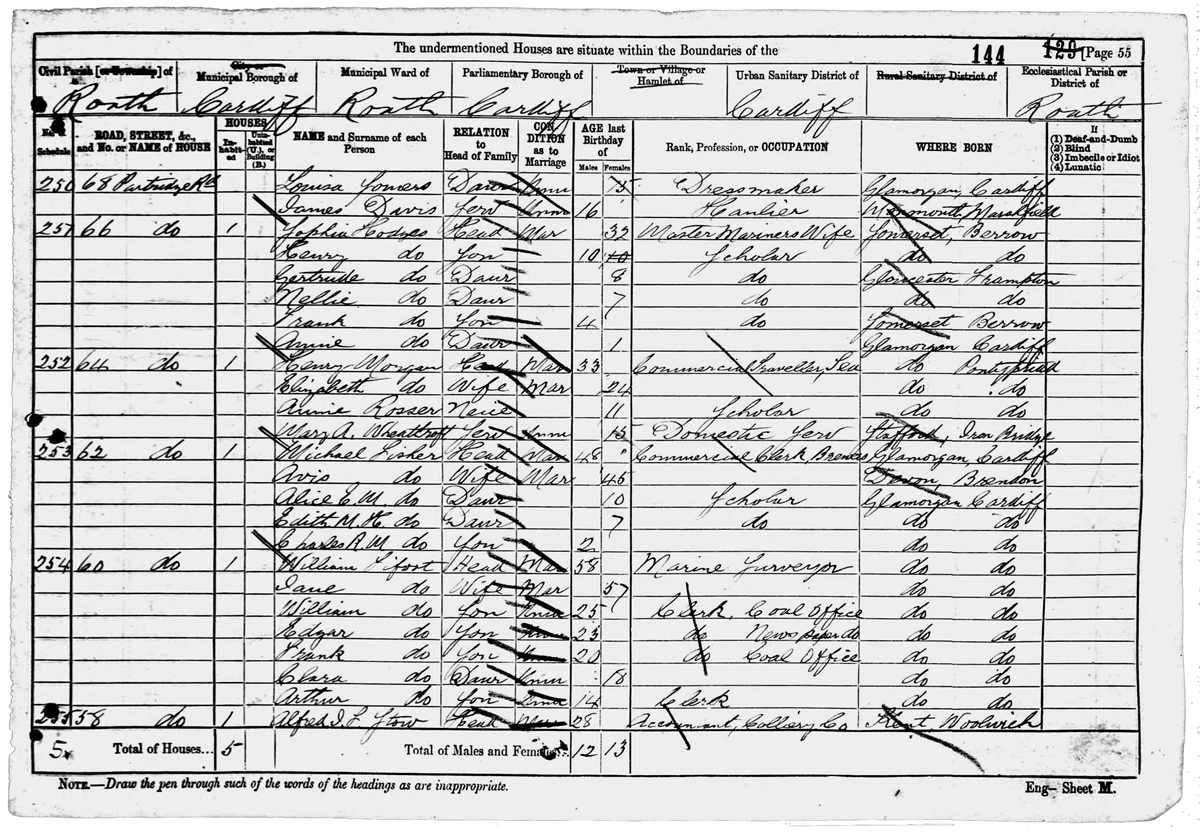 The undermentioned Houses are situate within the Boundaries of the 144 129 [Page 55
Civil Parish [or Township] of City or Municipal Borough of Municipal Ward of Parliamentary Borough of Town or Village or Hamlet of Urban Sanitary District of Rural Sanitary District of Ecclesiastical Parish or District of
Roath Cardiff Roath Cardiff Cardiff Roath
No. Schedule ROAD, STREET, &c., and No. or NAME of HOUSE HOUSES Inhabited Uninhabited (U.), or Building (B.) NAME and Surname of each Person RELATION to Head of Family CONDITION as to Marriage AGE last Birthday of Males Females Rank, Profession, or OCCUPATION WHERE BORN If (1) Deaf-and-Dumb (2) Blind (3) Imbecile or Idiot (4) Lunatic
250 68 Partridge Rd Louisa Somers Daur Unm 15 Dressmaker Glamorgan, Cardiff
James Davis Serv Unm 16 Haulier Monmouth, Marshfield
251 66 do 1 Sophia Hodges Head Mar 32 Master Mariners Wife Somerset, Berrow
Henry do Son 10 10 Scholar do do
Gertrude do Daur 8 do Gloucester Frampton
Nellie do Daur 7 do do do
Frank do Son 4 do Somerset Berrow
Annie do Daur 1 Glamorgan Cardiff
252 64 do 1 Henry Morgan Head Mar 33 Commercial Traveller, Tea do Pontypridd
Elizabeth do Wife Mar 24 do do
Annie Rosser Neice 11 Scholar do do
Mary A. Serv Unm 15 Domestic Serv Stafford, Iron Bridge
253 62 do 1 Michael Fisher Head Mar 48 Commercial Clerk, Glamorgan, Cardiff
Avis do Wife Mar 45 Devon, Brendon
Alice E. M. do Daur 10 Scholar Glamorgan Cardiff
Edith M. H. do Daur 7 do do do
Charles R. M do Son 2 do do
254 60 do 1 William Head Mar 58 Marine Surveyor do do
Jane do Wife Mar 57 do do
William do Son Unm 25 Clerk, Coal Office do do
Edgar do Son Unm 23 do News paper do do do
Frank do Son Unm 20 do Coal Office do do
Clara do Daur Unm 18 do do
Arthur do Son Unm 14 Clerk do do
255 58 do 1 Alfred J. L. Stow Head Mar 28 Accountant, Colliery Co Kent Woolwich
5 Total of Houses... 5 Total of Males and Females... 12 13
NOTE.—Draw the pen through such of the words of the headings as are inappropriate. Eng— Sheet M.